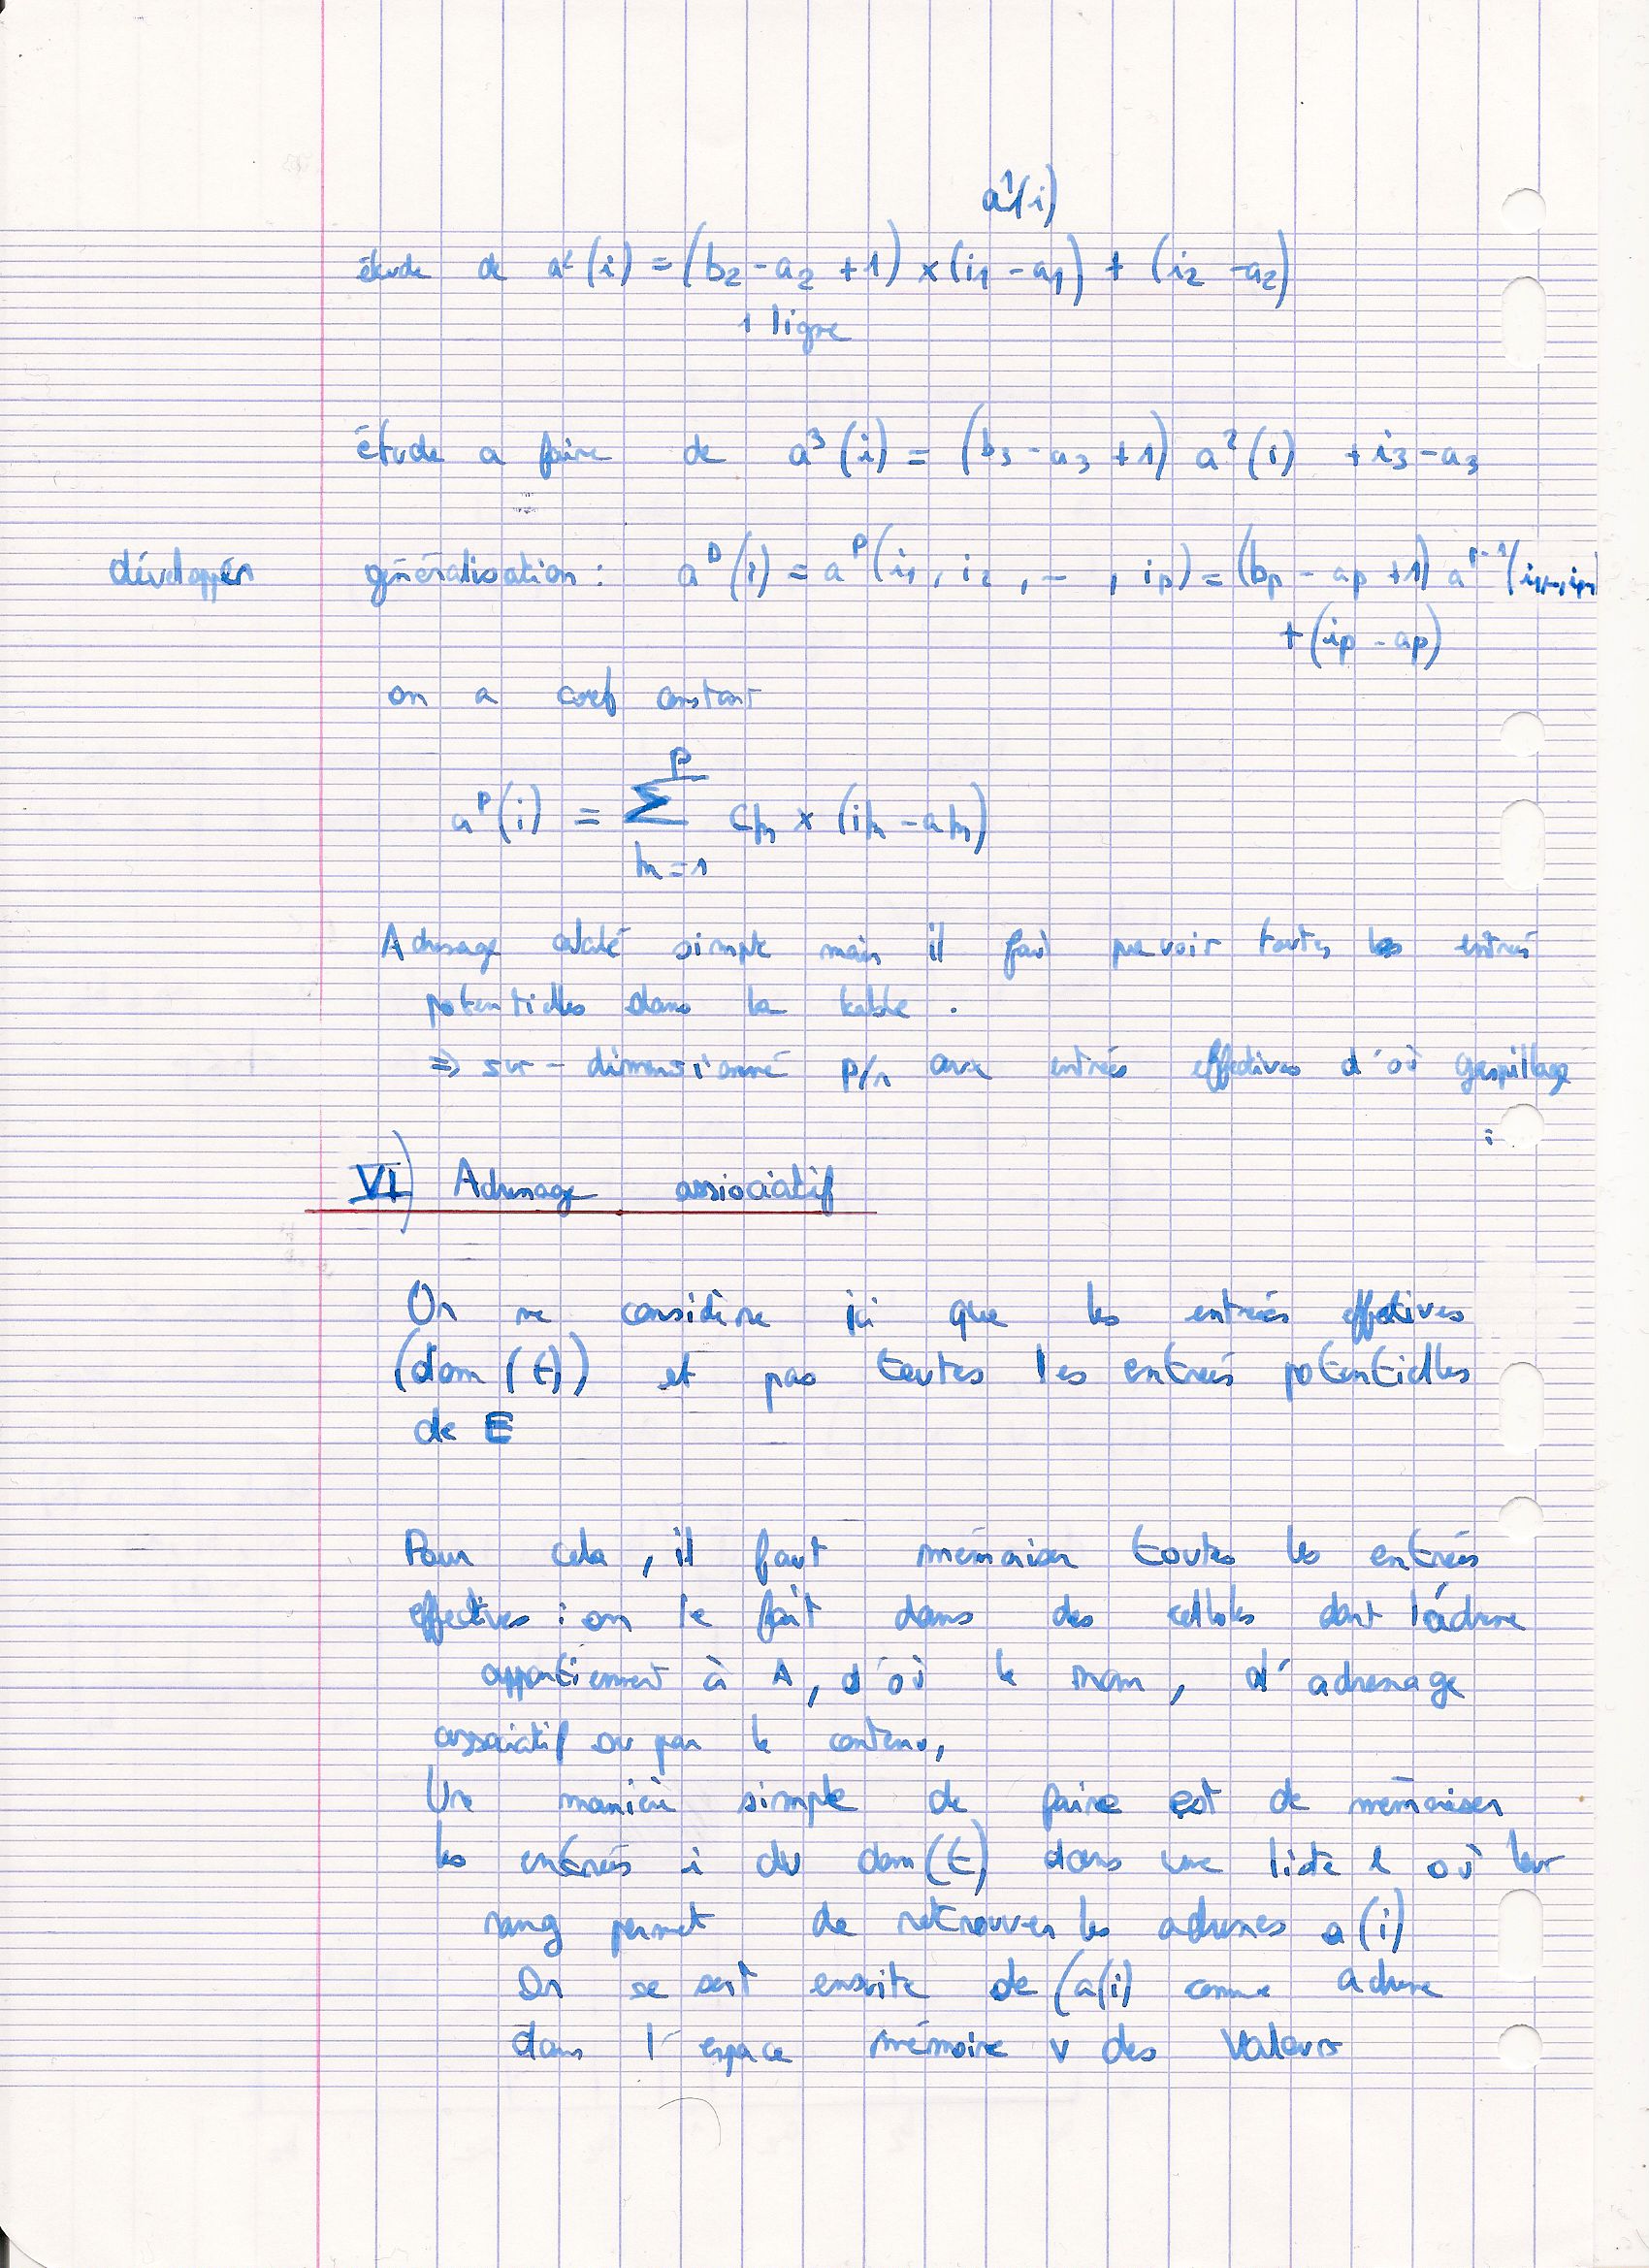 a¹(i)
étude de a²(i) = (b₂ - a₂ + 1) × (i₁ - a₁) + (i₂ - a₂)
1 ligne
étude a faire de a³(i) = (b₃ - a₃ + 1) a²(i) + i₃ - a₃
développer généralisation : aᵖ(i) = aᵖ(i₁, i₂, -, iₚ) = (bₚ - aₚ + 1) aᵖ⁻¹(i₁,-,iₚ₋₁)
+ (iₚ - aₚ)
on a coef constant
aᵖ(i) = Σ (k=1 … p) cₖ × (iₖ - aₖ)
Adressage calculé simple mais il faut prevoir toutes les entrées
potentielles dans la table .
⇒ sur-dimensionné p/r aux entrées effectives d'où gaspillage
VI) Adressage associatif
On ne considère ici que les entrées effectives
(dom (t)) et pas toutes les entrées potentielles
de E
Pour cela, il faut mémoriser toutes les entrées
effectives : on le fait dans des cellules dont l'adresse
appartiennent à A, d'où le nom, d'adressage
associatif ou par le contenu,
Une manière simple de faire est de mémoriser
les entrées i du dom(t) dans une liste l où leur
rang permet de retrouver les adresses a(i)
On se sert ensuite de (a(i) comme adresse
dans l'espace mémoire v des valeurs